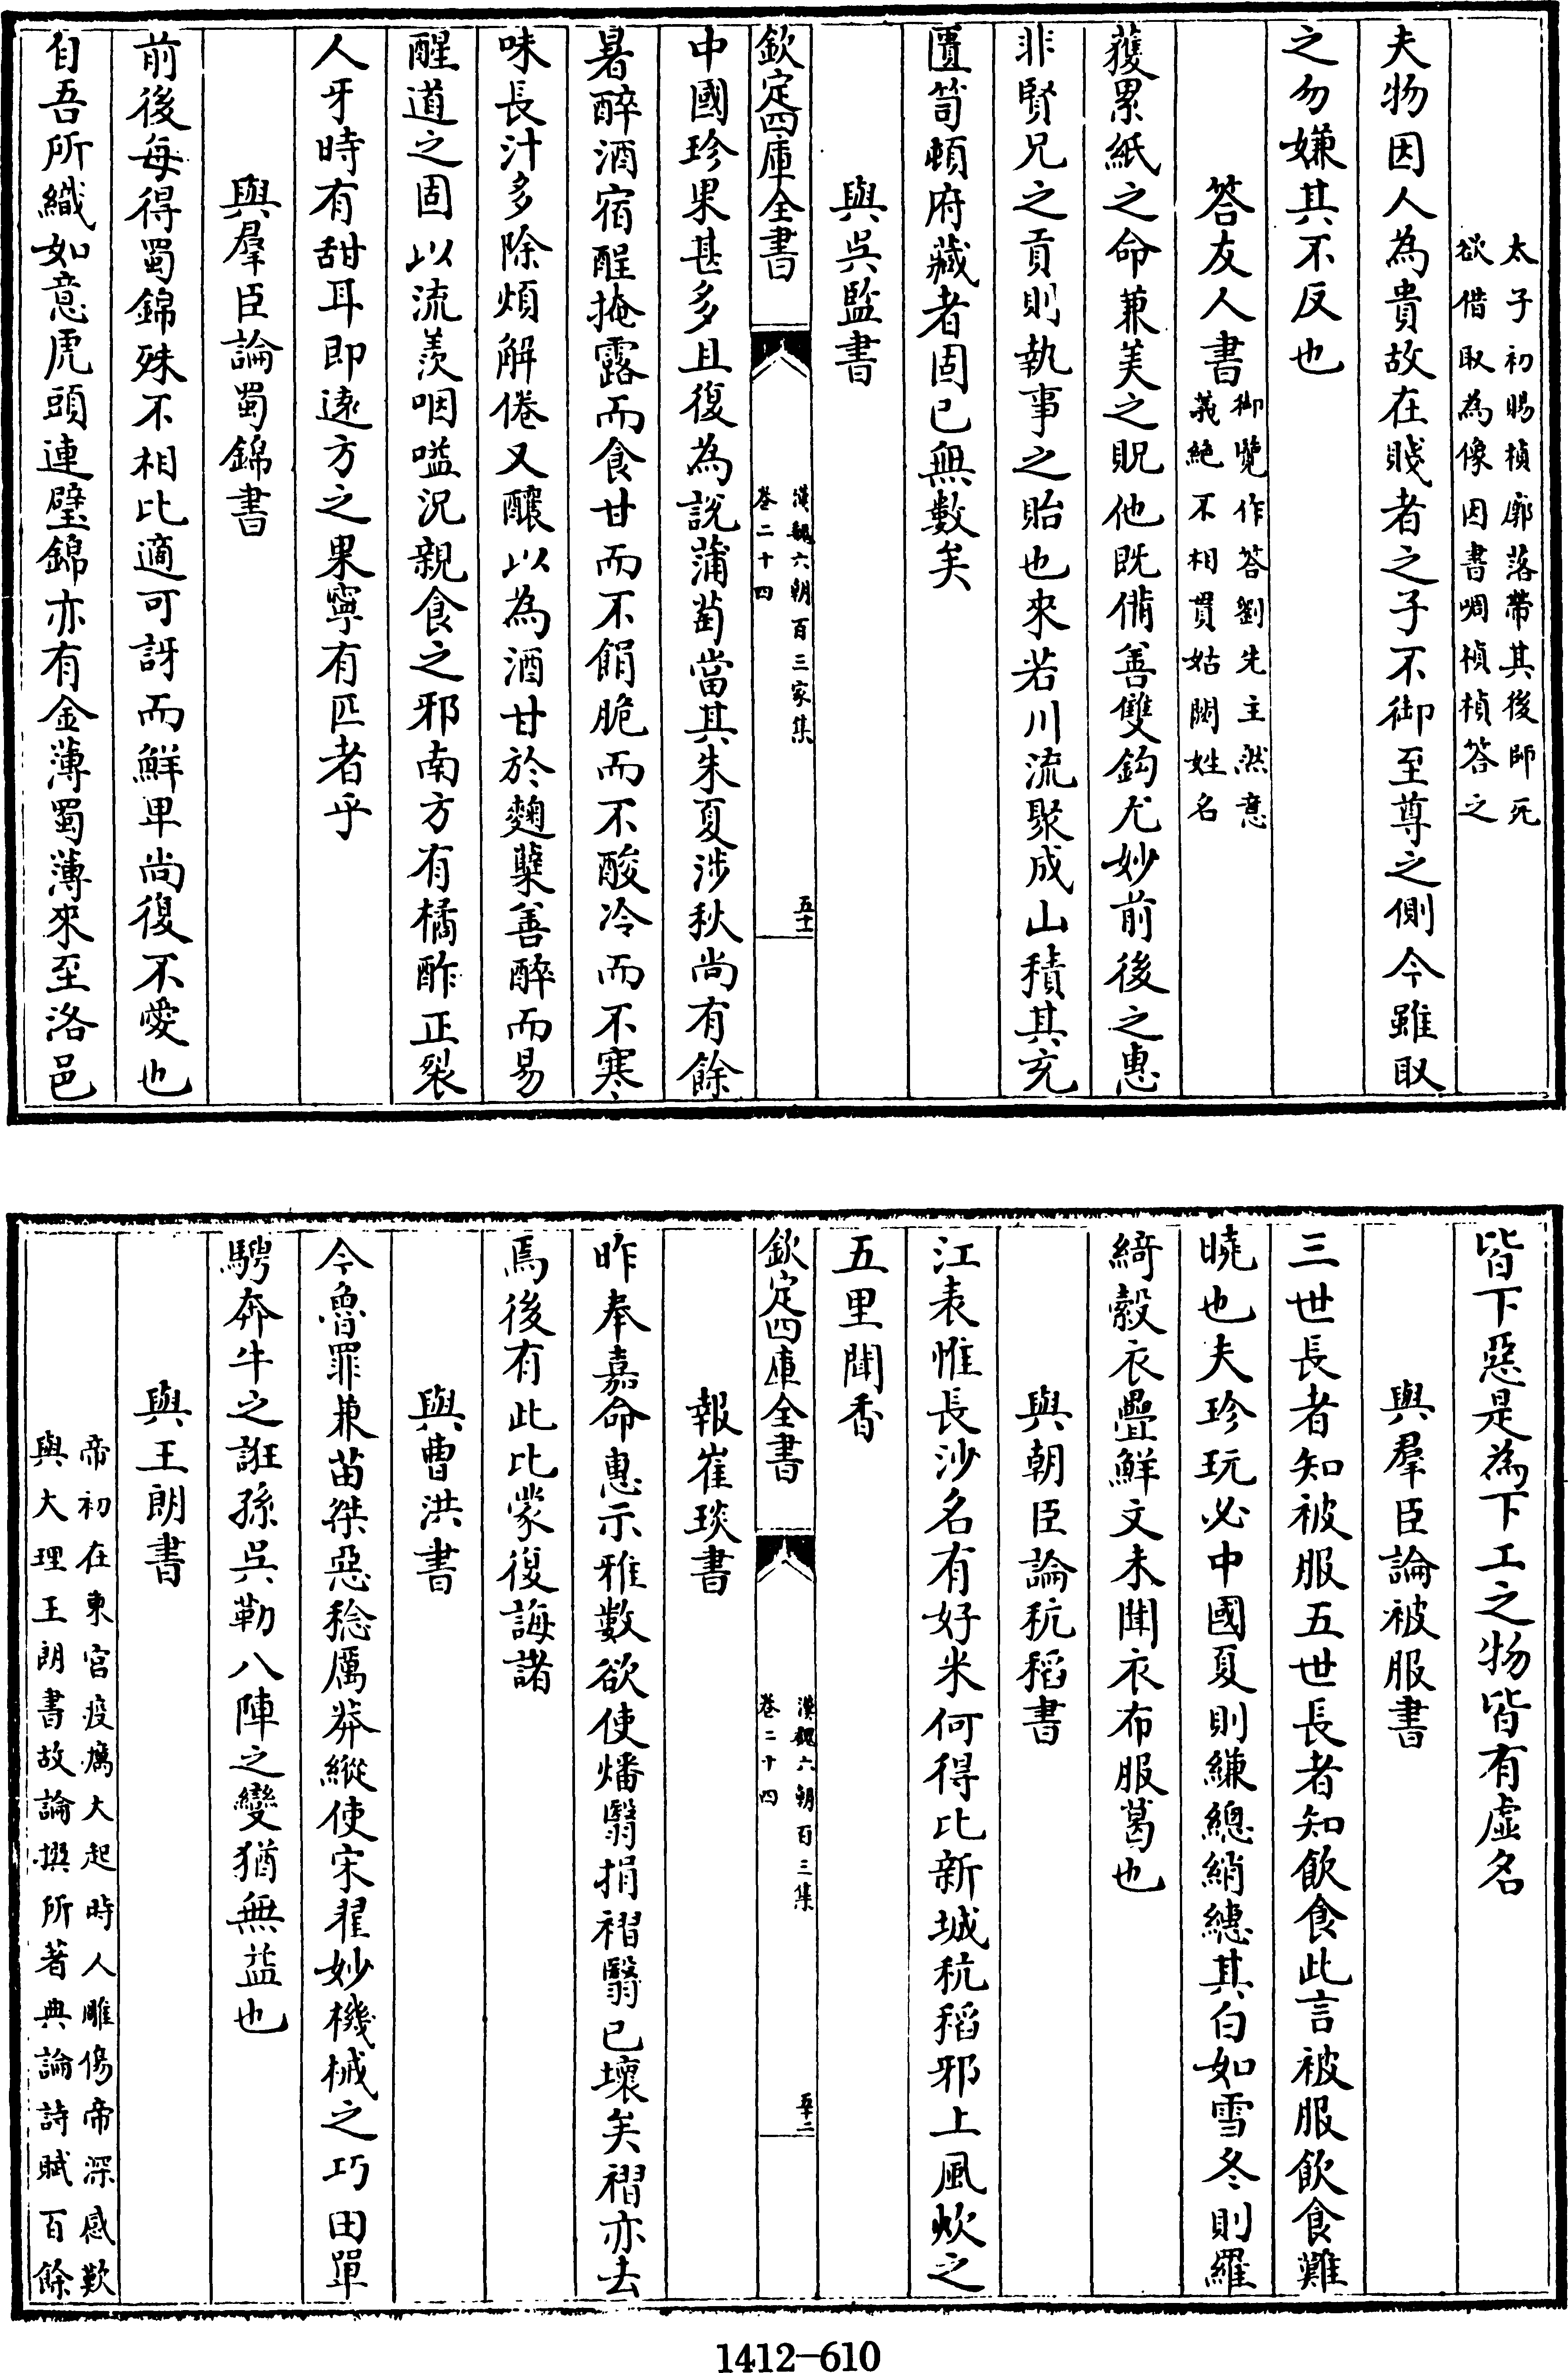 太子初賜楨廓落帶其後師死
欲借取為像因書啁楨楨答之
夫物因人為貴故在賤者之子不御至尊之側今雖取
之勿嫌其不反也
答友人書御覽作答劉先主然意
義絶不相貫姑闕姓名
獲累紙之命兼美之貺他既備善雙鈎尤妙前後之惠
非賢兄之貢則執事之貽也來若川流聚成山積其充
匱笥頓府藏者固已無數矣
與吳監書
欽定四庫全書
漢魏六朝百三家集
卷二十四
五十一
中國珍果甚多且復為説蒲萄當其朱夏渉秋尚有餘
暑醉酒宿酲掩露而食甘而不䬼脆而不酸冷而不寒
味長汁多除煩解倦又釀以為酒甘於麴糵善醉而易
醒道之固以流羨咽嗌況親食之邪南方有橘酢正裂
人牙時有甜耳即逺方之果寧有匹者乎
與羣臣論蜀錦書
前後每得蜀錦殊不相比適可訝而鮮卑尚復不愛也
自吾所織如意虎頭連璧錦亦有金薄蜀薄來至洛邑
皆下惡是為下工之物皆有虛名
與羣臣論被服書
三世長者知被服五世長者知飲食此言被服飲食難
曉也夫珍玩必中國夏則縑總綃繐其白如雪冬則羅
綺縠衣疊鮮文未聞衣布服葛也
與朝臣論秔稻書
江表惟長沙名有好米何得比新城秔稻邪上風炊之
五里聞香
欽定四庫全書
漢魏六朝百三集
卷二十四
五十二
報崔琰書
昨奉嘉命惠示雅數欲使燔翳捐褶翳已壞矣褶亦去
焉後有此比蒙復誨諸
與曹洪書
今魯罪兼苗桀惡稔厲莽縱使宋翟妙機械之巧田單
騁奔牛之誑孫吳勒八陣之變猶無益也
與王朗書
帝初在東宮疫癘大起時人雕傷帝深感歎
與大理王朗書故論撰所著典論詩賦百餘
1412—610